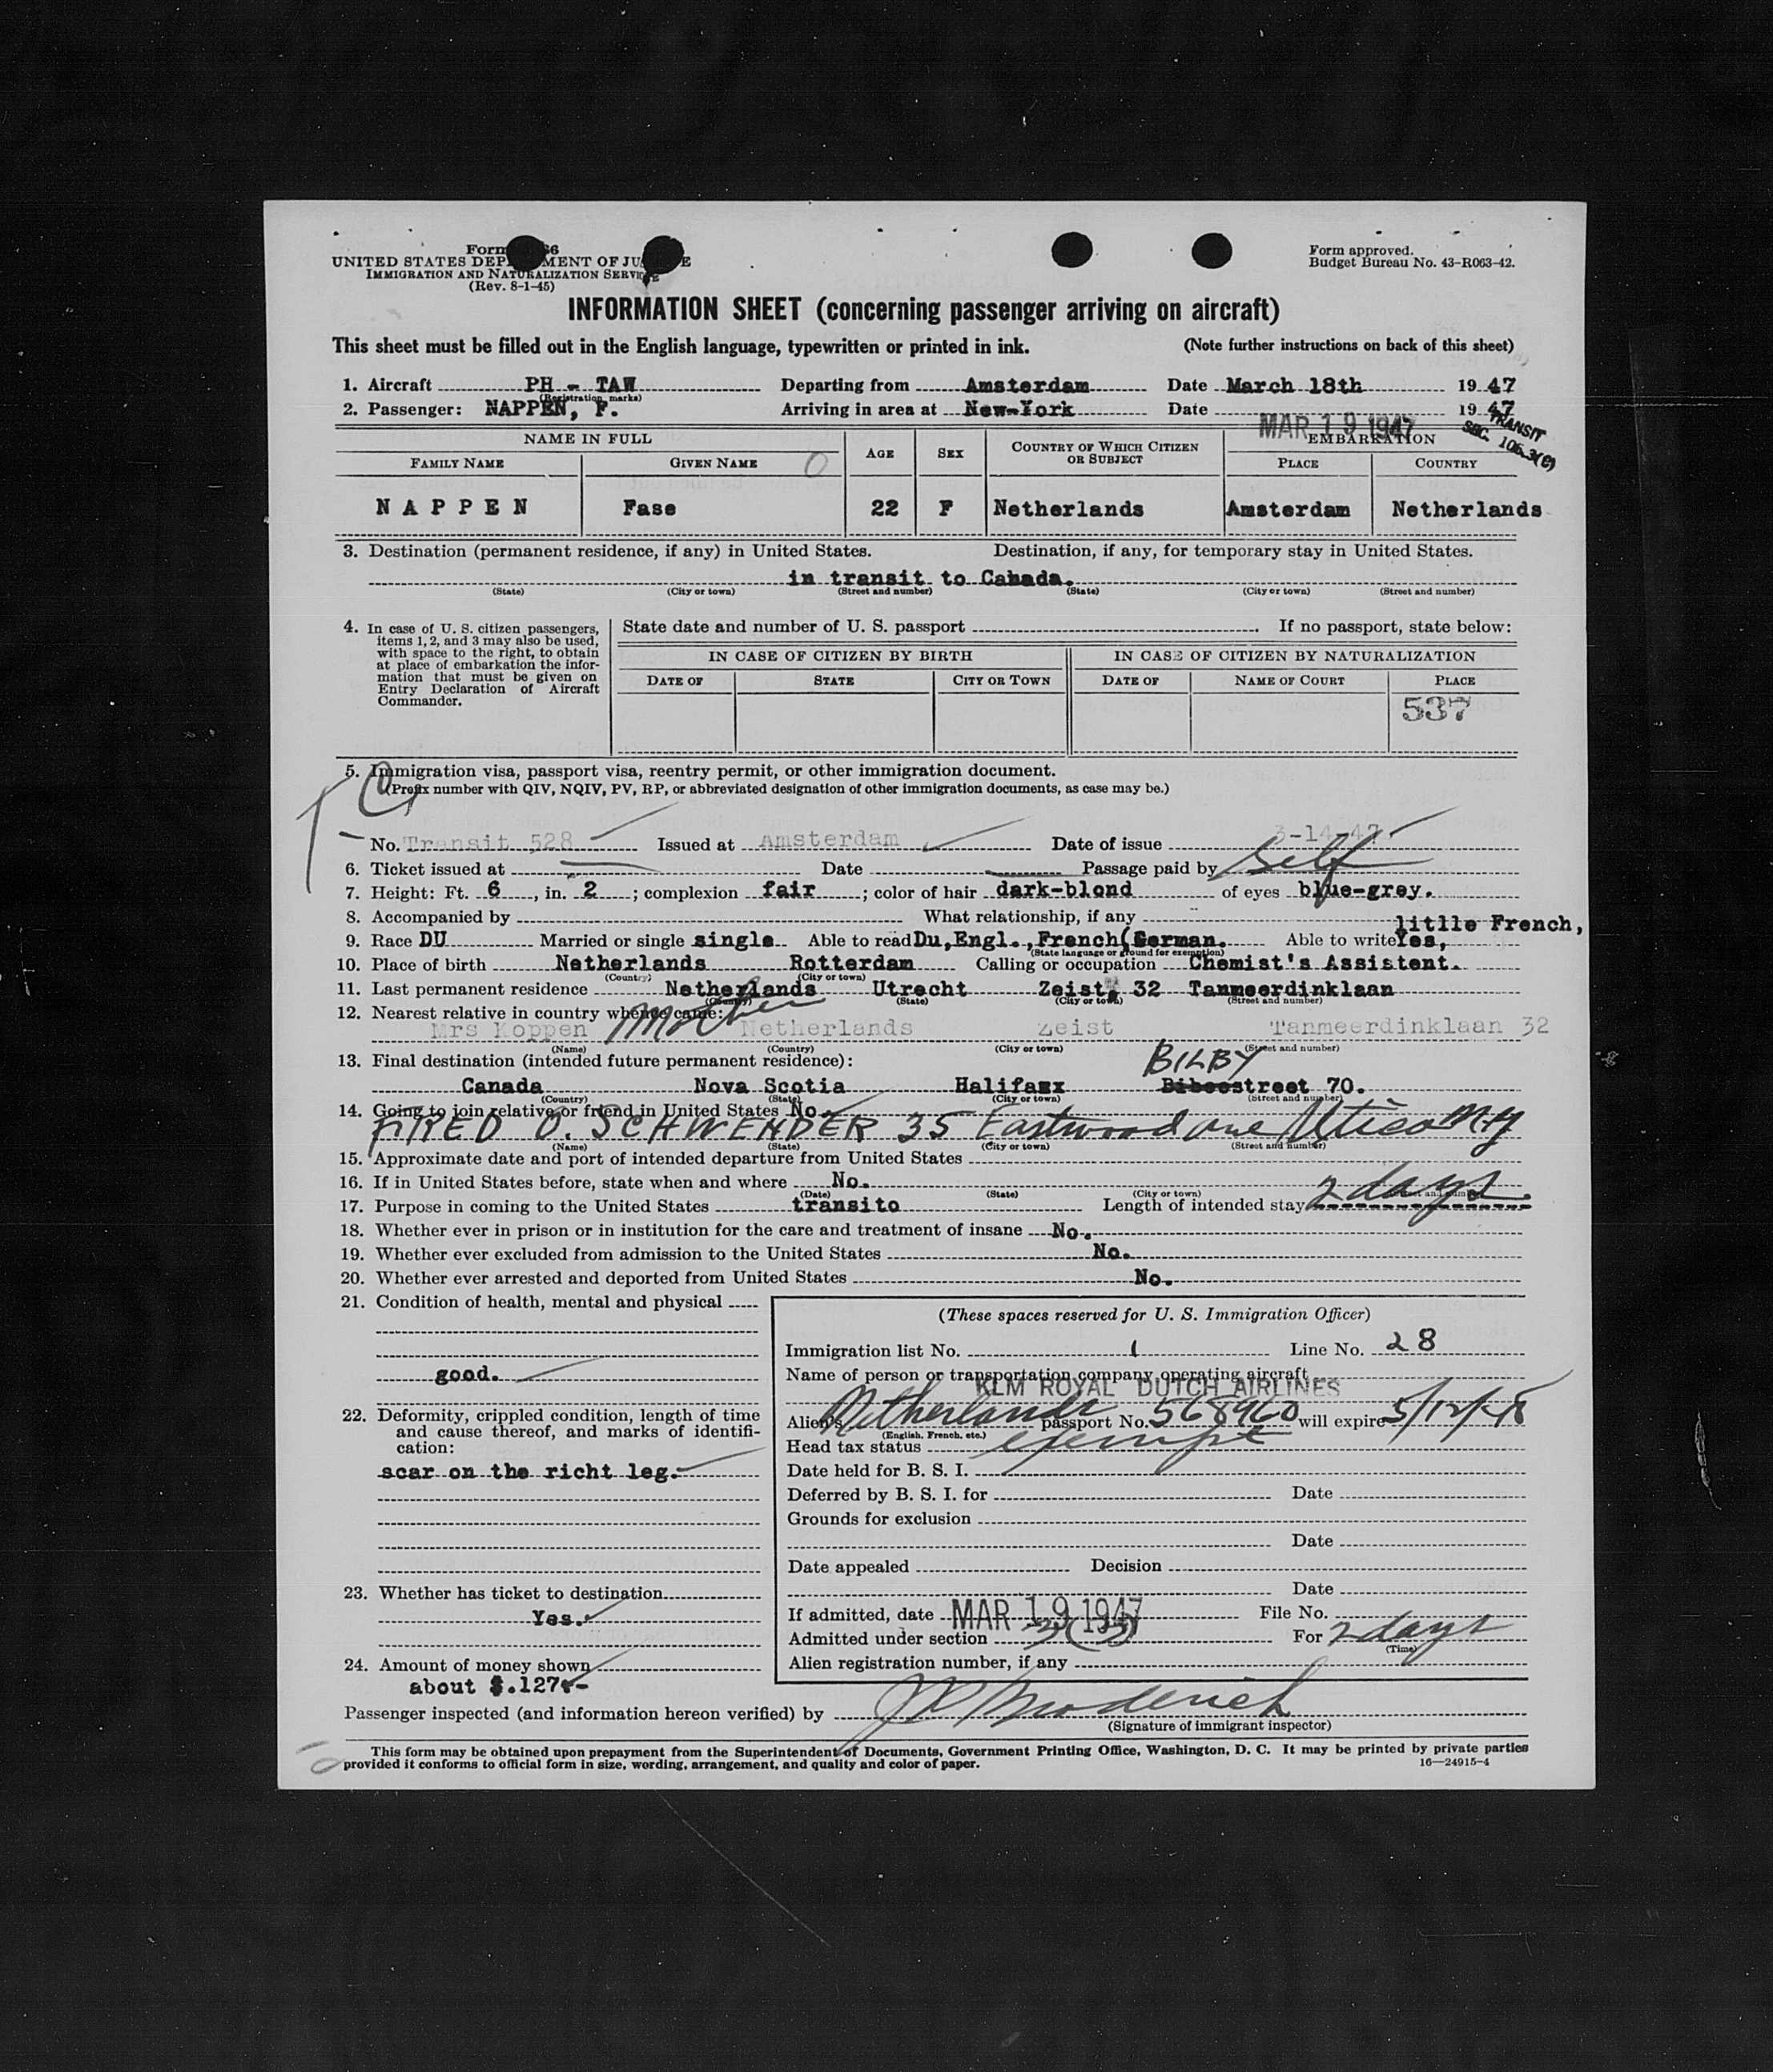 Form 66
UNITED STATES DEPARTMENT OF JUSTICE
IMMIGRATION AND NATURALIZATION SERVICE
(Rev. 8-1-45)
Form approved.
Budget Bureau No. 43-R063-42.
INFORMATION SHEET (concerning passenger arriving on aircraft)
This sheet must be filled out in the English language, typewritten or printed in ink. (Note further instructions on back of this sheet)
1. Aircraft PH - TAW Departing from Amsterdam Date March 18th 1947
(Registration marks)
2. Passenger: NAPPEN, F. Arriving in area at New-York Date MAR 19 1947 1947
TRANSIT
SEC. 106.3(C)
NAME IN FULL AGE SEX COUNTRY OF WHICH CITIZEN OR SUBJECT EMBARKATION
FAMILY NAME GIVEN NAME PLACE COUNTRY
NAPPEN Fase 22 F Netherlands Amsterdam Netherlands
3. Destination (permanent residence, if any) in United States. Destination, if any, for temporary stay in United States.
in transit to Canada.
(State) (City or town) (Street and number) (State) (City or town) (Street and number)
4. In case of U. S. citizen passengers, items 1, 2, and 3 may also be used, with space to the right, to obtain at place of embarkation the information that must be given on Entry Declaration of Aircraft Commander.
State date and number of U. S. passport . If no passport, state below:
IN CASE OF CITIZEN BY BIRTH IN CASE OF CITIZEN BY NATURALIZATION
DATE OF STATE CITY OR TOWN DATE OF NAME OF COURT PLACE
537
5. Immigration visa, passport visa, reentry permit, or other immigration document.
(Prefix number with QIV, NQIV, PV, RP, or abbreviated designation of other immigration documents, as case may be.)
No. Transit 528 Issued at Amsterdam Date of issue 3-14-47
6. Ticket issued at Date Passage paid by Self
7. Height: Ft. 6, in. 2; complexion fair; color of hair dark-blond of eyes blue-grey.
8. Accompanied by What relationship, if any
litlle French,
9. Race DU Married or single single Able to read Du,Engl.,French(German. Able to write Yes,
(State language or ground for exemption)
10. Place of birth Netherlands Rotterdam Calling or occupation Chemist's Assistent.
(Country) (City or town)
11. Last permanent residence Netherlands Utrecht Zeist, 32 Tanmeerdinklaan
(Country) (State) (City or town) (Street and number)
12. Nearest relative in country whence came: Mother
Mrs Koppen Netherlands Zeist Tanmeerdinklaan 32
(Name) (Country) (City or town) (Street and number)
13. Final destination (intended future permanent residence): BILBY
Canada Nova Scotia Halifaxx Bibeestreet 70.
(Country) (State) (City or town) (Street and number)
14. Going to join relative or friend in United States No.
FRED O. SCHWENDER 35 Eastwood ave Utica NY
(Name) (State) (City or town) (Street and number)
15. Approximate date and port of intended departure from United States
16. If in United States before, state when and where No.
(Date) (State) (City or town) (Street and number)
17. Purpose in coming to the United States transito Length of intended stay 2 days
18. Whether ever in prison or in institution for the care and treatment of insane No.
19. Whether ever excluded from admission to the United States No.
20. Whether ever arrested and deported from United States No.
21. Condition of health, mental and physical
good.
22. Deformity, crippled condition, length of time and cause thereof, and marks of identification:
scar on the richt leg.
23. Whether has ticket to destination
Yes.
24. Amount of money shown
about $.127.-
(These spaces reserved for U. S. Immigration Officer)
Immigration list No. 1 Line No. 28
Name of person or transportation company operating aircraft
KLM ROYAL DUTCH AIRLINES
Alien's Netherlands passport No. 568960 will expire 5/12/48
(English, French, etc.)
Head tax status exempt
Date held for B. S. I.
Deferred by B. S. I. for Date
Grounds for exclusion
Date
Date appealed Decision
Date
If admitted, date MAR 19 1947 File No.
Admitted under section 3(3) For 2 days
(Time)
Alien registration number, if any
Passenger inspected (and information hereon verified) by J Broderick
(Signature of immigrant inspector)
This form may be obtained upon prepayment from the Superintendent of Documents, Government Printing Office, Washington, D. C. It may be printed by private parties
provided it conforms to official form in size, wording, arrangement, and quality and color of paper.
16—24915-4